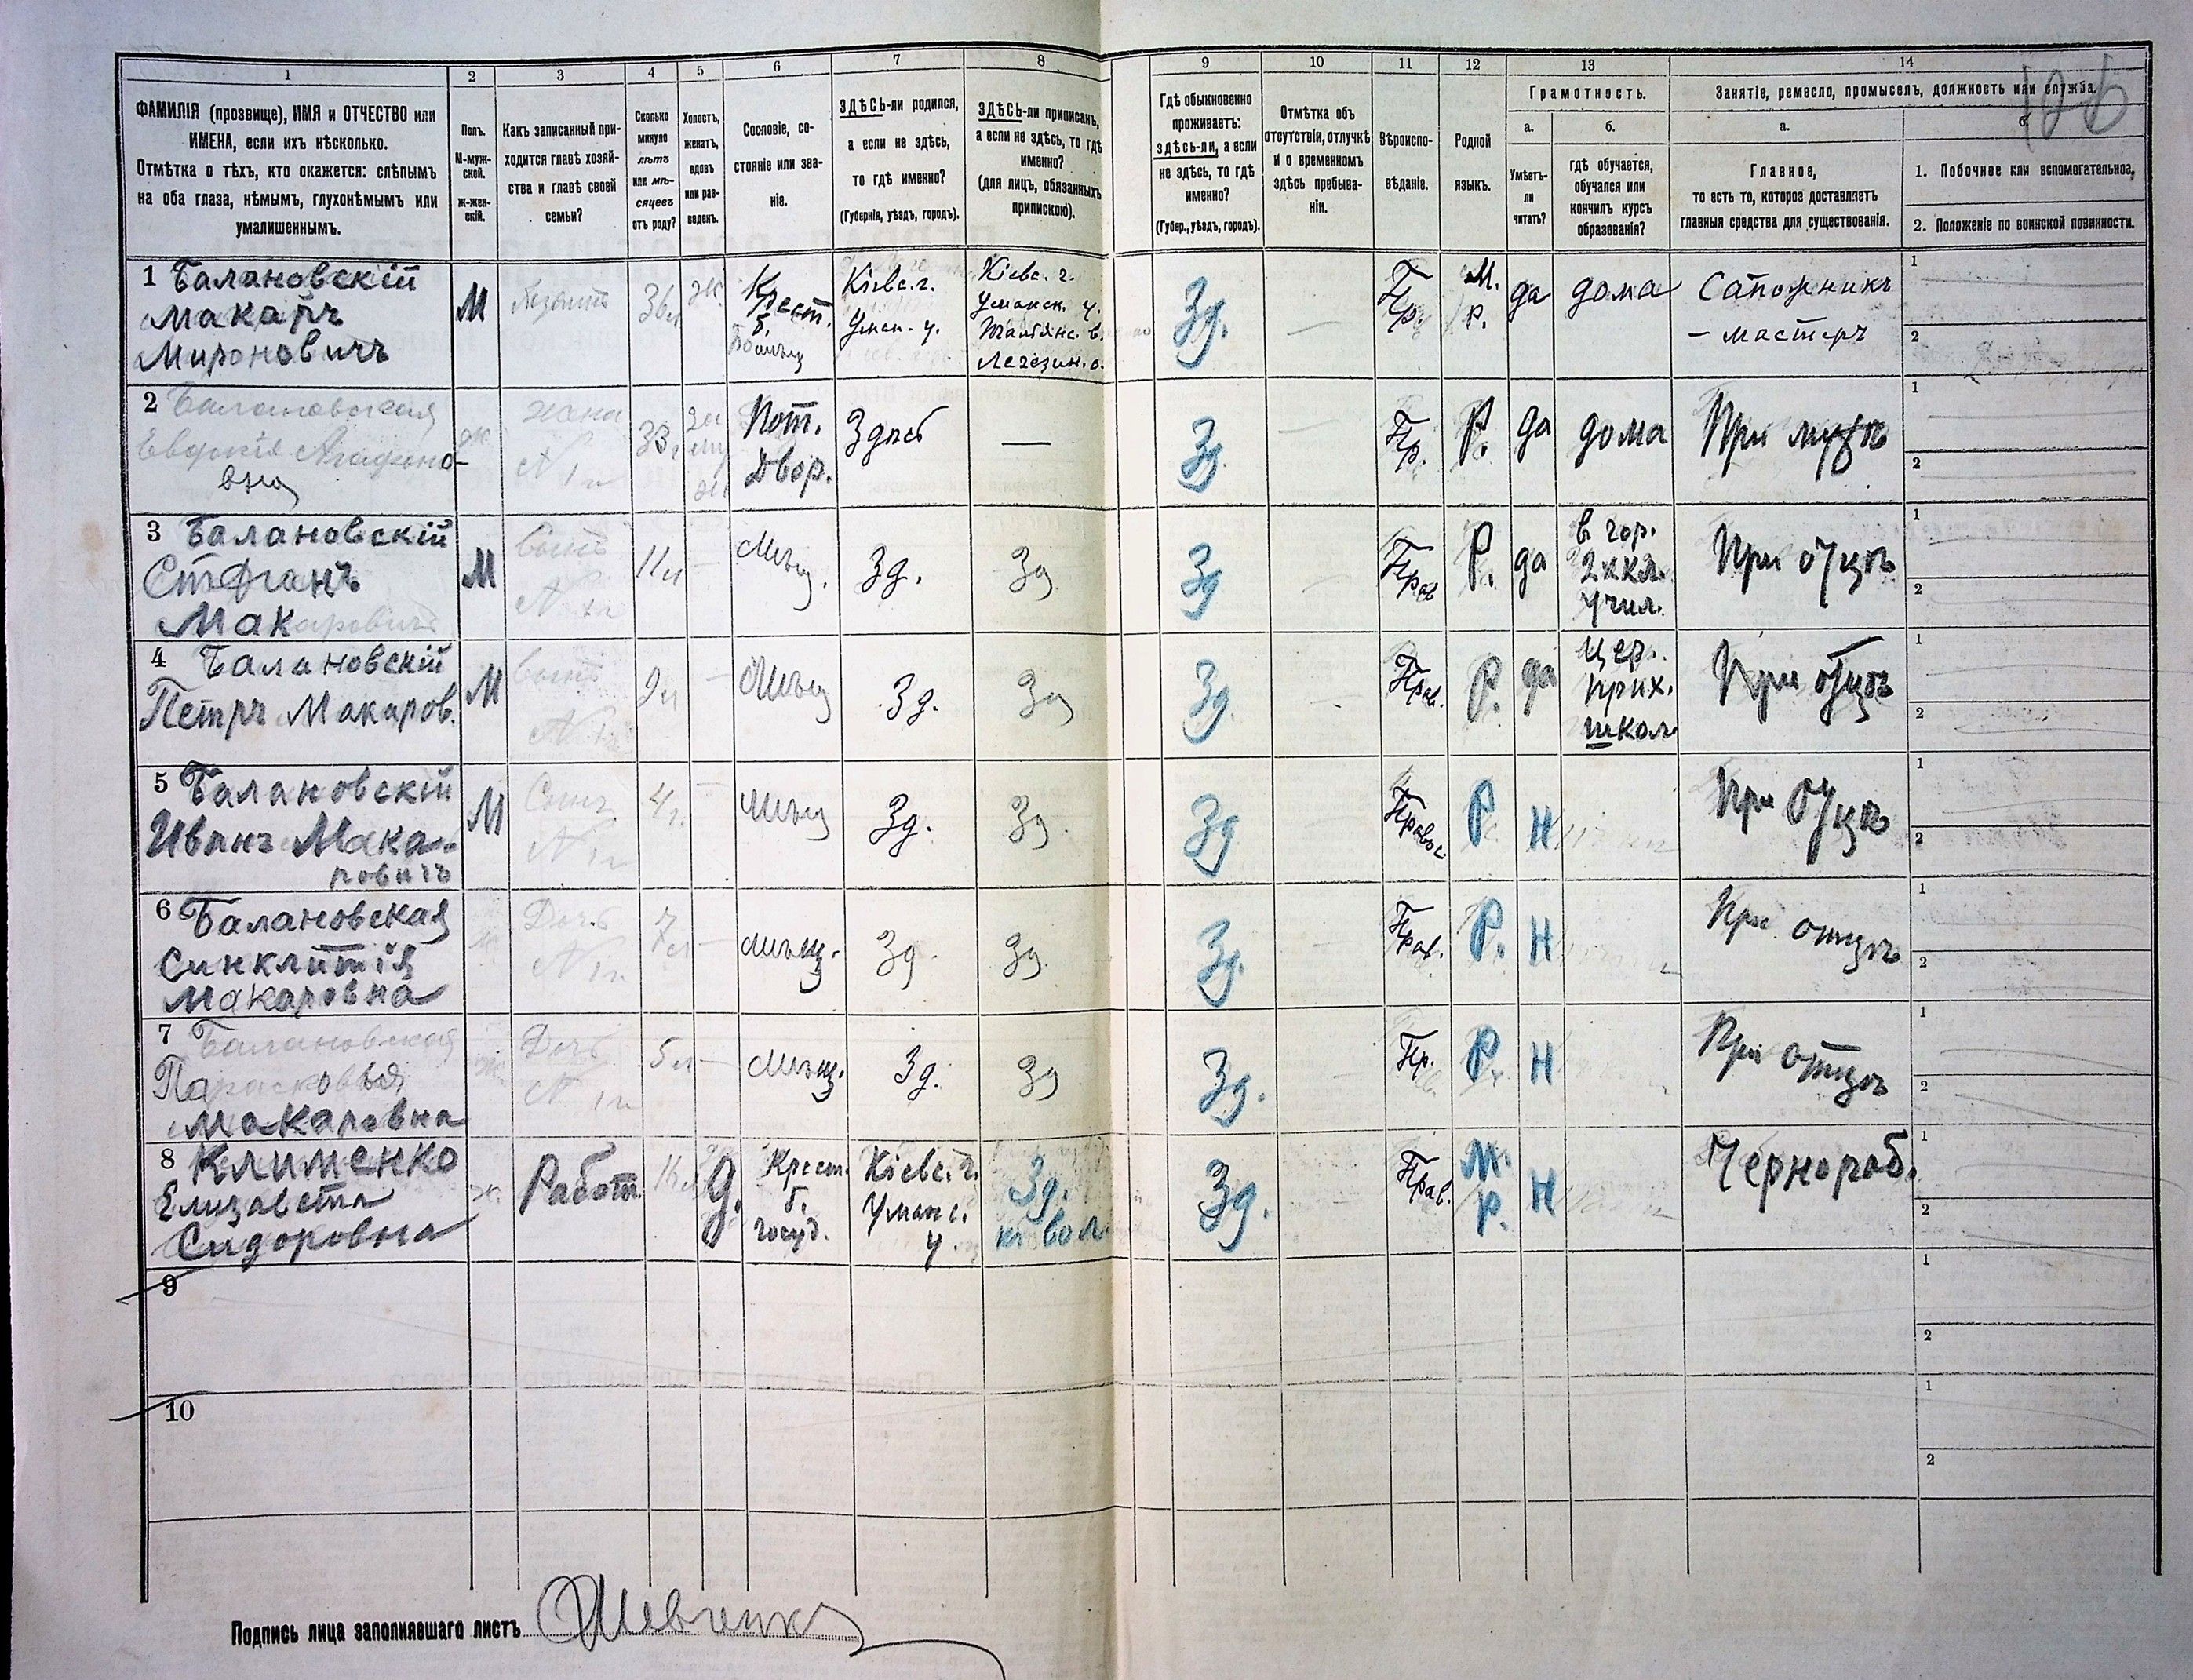 1 2 3 4 5 6 7 8 9 10 11 12 13 14
ФАМИЛІЯ (прозвище), ИМЯ и ОТЧЕСТВО или
ИМЕНА, если ихъ нѣсколько.
Отмѣтка о тѣхъ, кто окажется: слѣпымъ
на оба глаза, нѣмымъ, глухонѣмымъ или
умалишеннымъ.
Полъ.
М-муж-
ской.
ж-жен-
скій.
Какъ записанный при-
ходится главѣ хозяй-
ства и главѣ своей
семьи?
Сколько
минуло
лѣтъ
или мѣ-
сяцевъ
отъ роду?
Холостъ,
женатъ,
вдовъ
или раз-
веденъ.
Сословіе, со-
стояніе или зва-
ніе.
ЗДѢСЬ-ли родился,
а если не здѣсь,
то гдѣ именно?
(Губернія, уѣздъ, городъ).
ЗДѢСЬ-ли приписанъ,
а если не здѣсь, то гдѣ
именно?
(для лицъ, обязанныхъ
припискою).
Гдѣ обыкновенно
проживаетъ:
здѣсь-ли, а если
не здѣсь, то гдѣ
именно?
(Губер., уѣздъ, городъ).
Отмѣтка объ
отсутствіи, отлучкѣ
и о временномъ
здѣсь пребыва-
ніи.
Вѣроиспо-
вѣданіе.
Родной
языкъ.
Грамотность.
а.
Умѣетъ-
ли
читать?
б.
гдѣ обучается,
обучался или
кончилъ курсъ
образованія?
Занятіе, ремесло, промыселъ, должность или служба.
а.
Главное,
то есть то, которое доставляетъ
главныя средства для существованія.
б.
1. Побочное или вспомогательное,
2. Положеніе по воинской повинности.
1 Балановскій
Макаръ
Мироновичъ
М
36
Крест.
б.
Кіевс. г.
Уман. у.
Кіевс. г.
Уманск. у.
Зд.
Пр.
М.
р.
да
дома
Сапожникъ
- мастеръ
1
2
2 Балановская
Евдокія Агафоно-
вна
жена
N 1
33
Пот.
Двор.
Здѣсь
—
Зд
Пр.
Р.
да
дома
При мужѣ
1
2
3 Балановскій
Стефанъ
Макаровичъ
М
N 1
11
Мѣщ.
Зд.
Зд
Зд
Прав
Р.
да
в гор.
2хкл.
учил.
При отцѣ
1
2
4 Балановскій
Петръ Макаров.
М
N 1
9
Мѣщ
Зд.
Зд
Зд
Прав.
Р.
да
цер.
прих.
школ
При отцѣ
1
2
5 Балановскій
Иванъ Мака-
ровичъ
М
Сынъ
N 1
4 г.
Мѣщ
Зд.
Зд.
Зд
Правос
Р.
Н
При отцѣ
1
2
6 Балановская
Синклитія
Макаровна
Дочь
N 1
7
Мѣщ.
Зд.
Зд.
Зд.
Прав.
Р.
Н
При отцѣ
1
2
7 Балановская
Парасковья
Макаровна
Дочь
N 1
5
Мѣщ.
Зд.
Зд
Зд.
Пр.
Р.
Н
При отцѣ
1
2
8 Клименко
Елизавета
Сидоровна
Работ.
д.
Крест.
б.
госуд.
Кіевс. г.
Уманс.
у.
Зд.
Зд.
Прав.
М.
р.
Н
Чернораб.
1
2
9
1
2
10
1
2
Подпись лица заполнявшаго листъ Шевченко